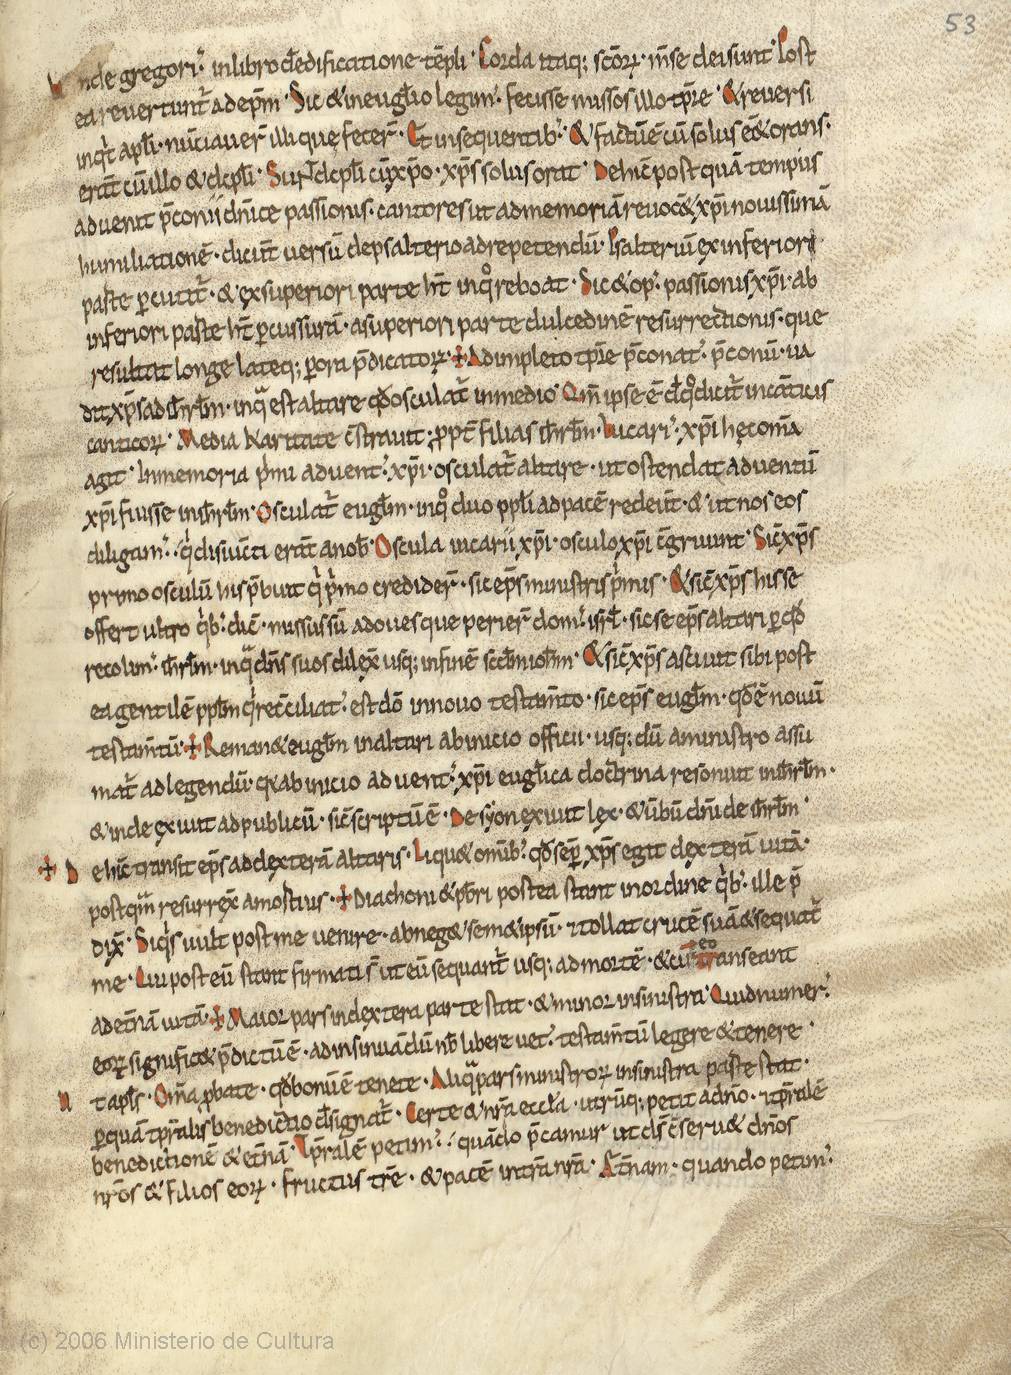 53
Unde gregori᷒ inlibro đedificatione tēpli · Corda itaq; scōꝝ · mse dei sunt · Post
ea revertunt̄ ad ep̄m · Sic & in eugl̄io legim᷒ · fecisse missos illo tp̄re · & reversi
inq̄t apl̄i · nunciaver̄ illi que fecer̄ · Et in sequentib᷒ · & factū ē cū solus ēet orans ·
erāt cū illo & dcpl̄i · Sunt dcpl̄i cū xp̄o · xp̄s solus orat · Dehic̄ post quā tempus
advenit p̄conii dn̄ice passionis · cantores ut ad memoriā revoc& xp̄i novissimā
humilationē · dicūt versū de psalterio ad repetendū · Psalteriū ex inferiori
parte ꝑcutit̄ · & ex superiori parte hn̄t inq̊ reboat · Sic & op᷒ passionis xp̄i · ab
inferiori parte hn̄t ꝑcussurā · a superiori parte dulcedinē resurrectionis · que
resultat longe lateq; ꝑ ora p̄dicatoꝝ · + Adimpleto tp̄re p̄conat᷒ · p̄coniū · va
dit xp̄s ad ihr̄l̄m · inq̄ est altare qđ osculat̄ in medio · Qm̄ ipse ē đ q̊ dicit̄ in cāticis
canticoꝝ · Media karitate c̄stravit ꝓpt̄ filias ihr̄l̄m · Vicari᷒ · xp̄i hec om̄ia
agit · In memoria p̄mi advent᷒ xp̄i · osculat̄ altare · ut ostendat adventū
xp̄i fuisse in ihr̄l̄m · Osculat̄ eugl̄m · inq̊ duo ppl̄i ad pacē redeūt · & ut nos eos
diligam᷒ · q̄ disiūcti erāt a nob̄ · Oscula vicarii xp̄i · osculo xp̄i c̄gruunt · Sic̄ xp̄s
primo osculū his p̄buit q̄ p̄mo credider̄ · sic ep̄s ministris p̄mis · & sic̄ xp̄s his se
offert ultro q̄b᷒ dic̄ · missus sū ad oves que perier̄ dom᷒ isrl̄ · sic se ep̄s altari ꝑ qđ
recolim᷒ ihr̄l̄m · inq̄ dn̄s suos dilex̄ usq; in finē scd̄m ioh̄m · & sic̄ xp̄s ascivit sibi post
ea gentilē ppl̄m q̄ rec̄ciliat᷒ est dō in novo testam̄to · sic ep̄s eugl̄m · qđ ē novū
testam̄tū · + Reman& eugl̄m in altari ab inicio officii · usq; dū a ministro assu
mat̄ ad legendū · q̄a ab inicio advent᷒ xp̄i eugl̄ica doctrina resonuit in ihr̄l̄m ·
& inde exivit ad publicū · sic̄ scriptū ē · De syon exivit lex · & v̄bū dn̄i de ihr̄l̄m ·
+ Dehic̄ transit ep̄s ad dexterā altaris · Liqu& omib᷒ qđ semp̄ xp̄s egit dexterā vitā ·
postquā resurrex̄ a mortuis · + Diachoni & p̄bri postea stant in ordine q̄b᷒ ille p̄
dix̄ · Siq̄s vult post me venire · abneg& semetipsū · & tollat crucē suā & sequat̄
me · Qui post eū stant firmati s̄ ut eū sequant̄ usq; ad mortē · & cū eo transeant
ad et̄nā vitā · + Maior pars in dextera parte stat · & minor in sinistra · Quid numer᷒
eoꝝ signific& p̄dictū ē · ad insinuādū nb̄ libere vet᷒ testam̄tū legere & tenere ·
ut apl̄s · Om̄a ꝓbate · qđ bonū ē tenete · Aliq̄ pars ministroꝝ in sinistra parte stat ·
ꝑ quā tp̄ralis benedictio đsignat̄ · Certe & nr̄a eccl̄a · utrūq; petit a dn̄o · & tp̄ralē
benedictionē & et̄nā · Tp̄ralē petim᷒ · quādo p̄camur ut dn̄s c̄serv& dn̄os
nr̄os & filios eoꝝ · fructus tr̄e · & pacē intrā nr̄a · Et̄nam · quando petim᷒
(c) 2006 Ministerio de Cultura